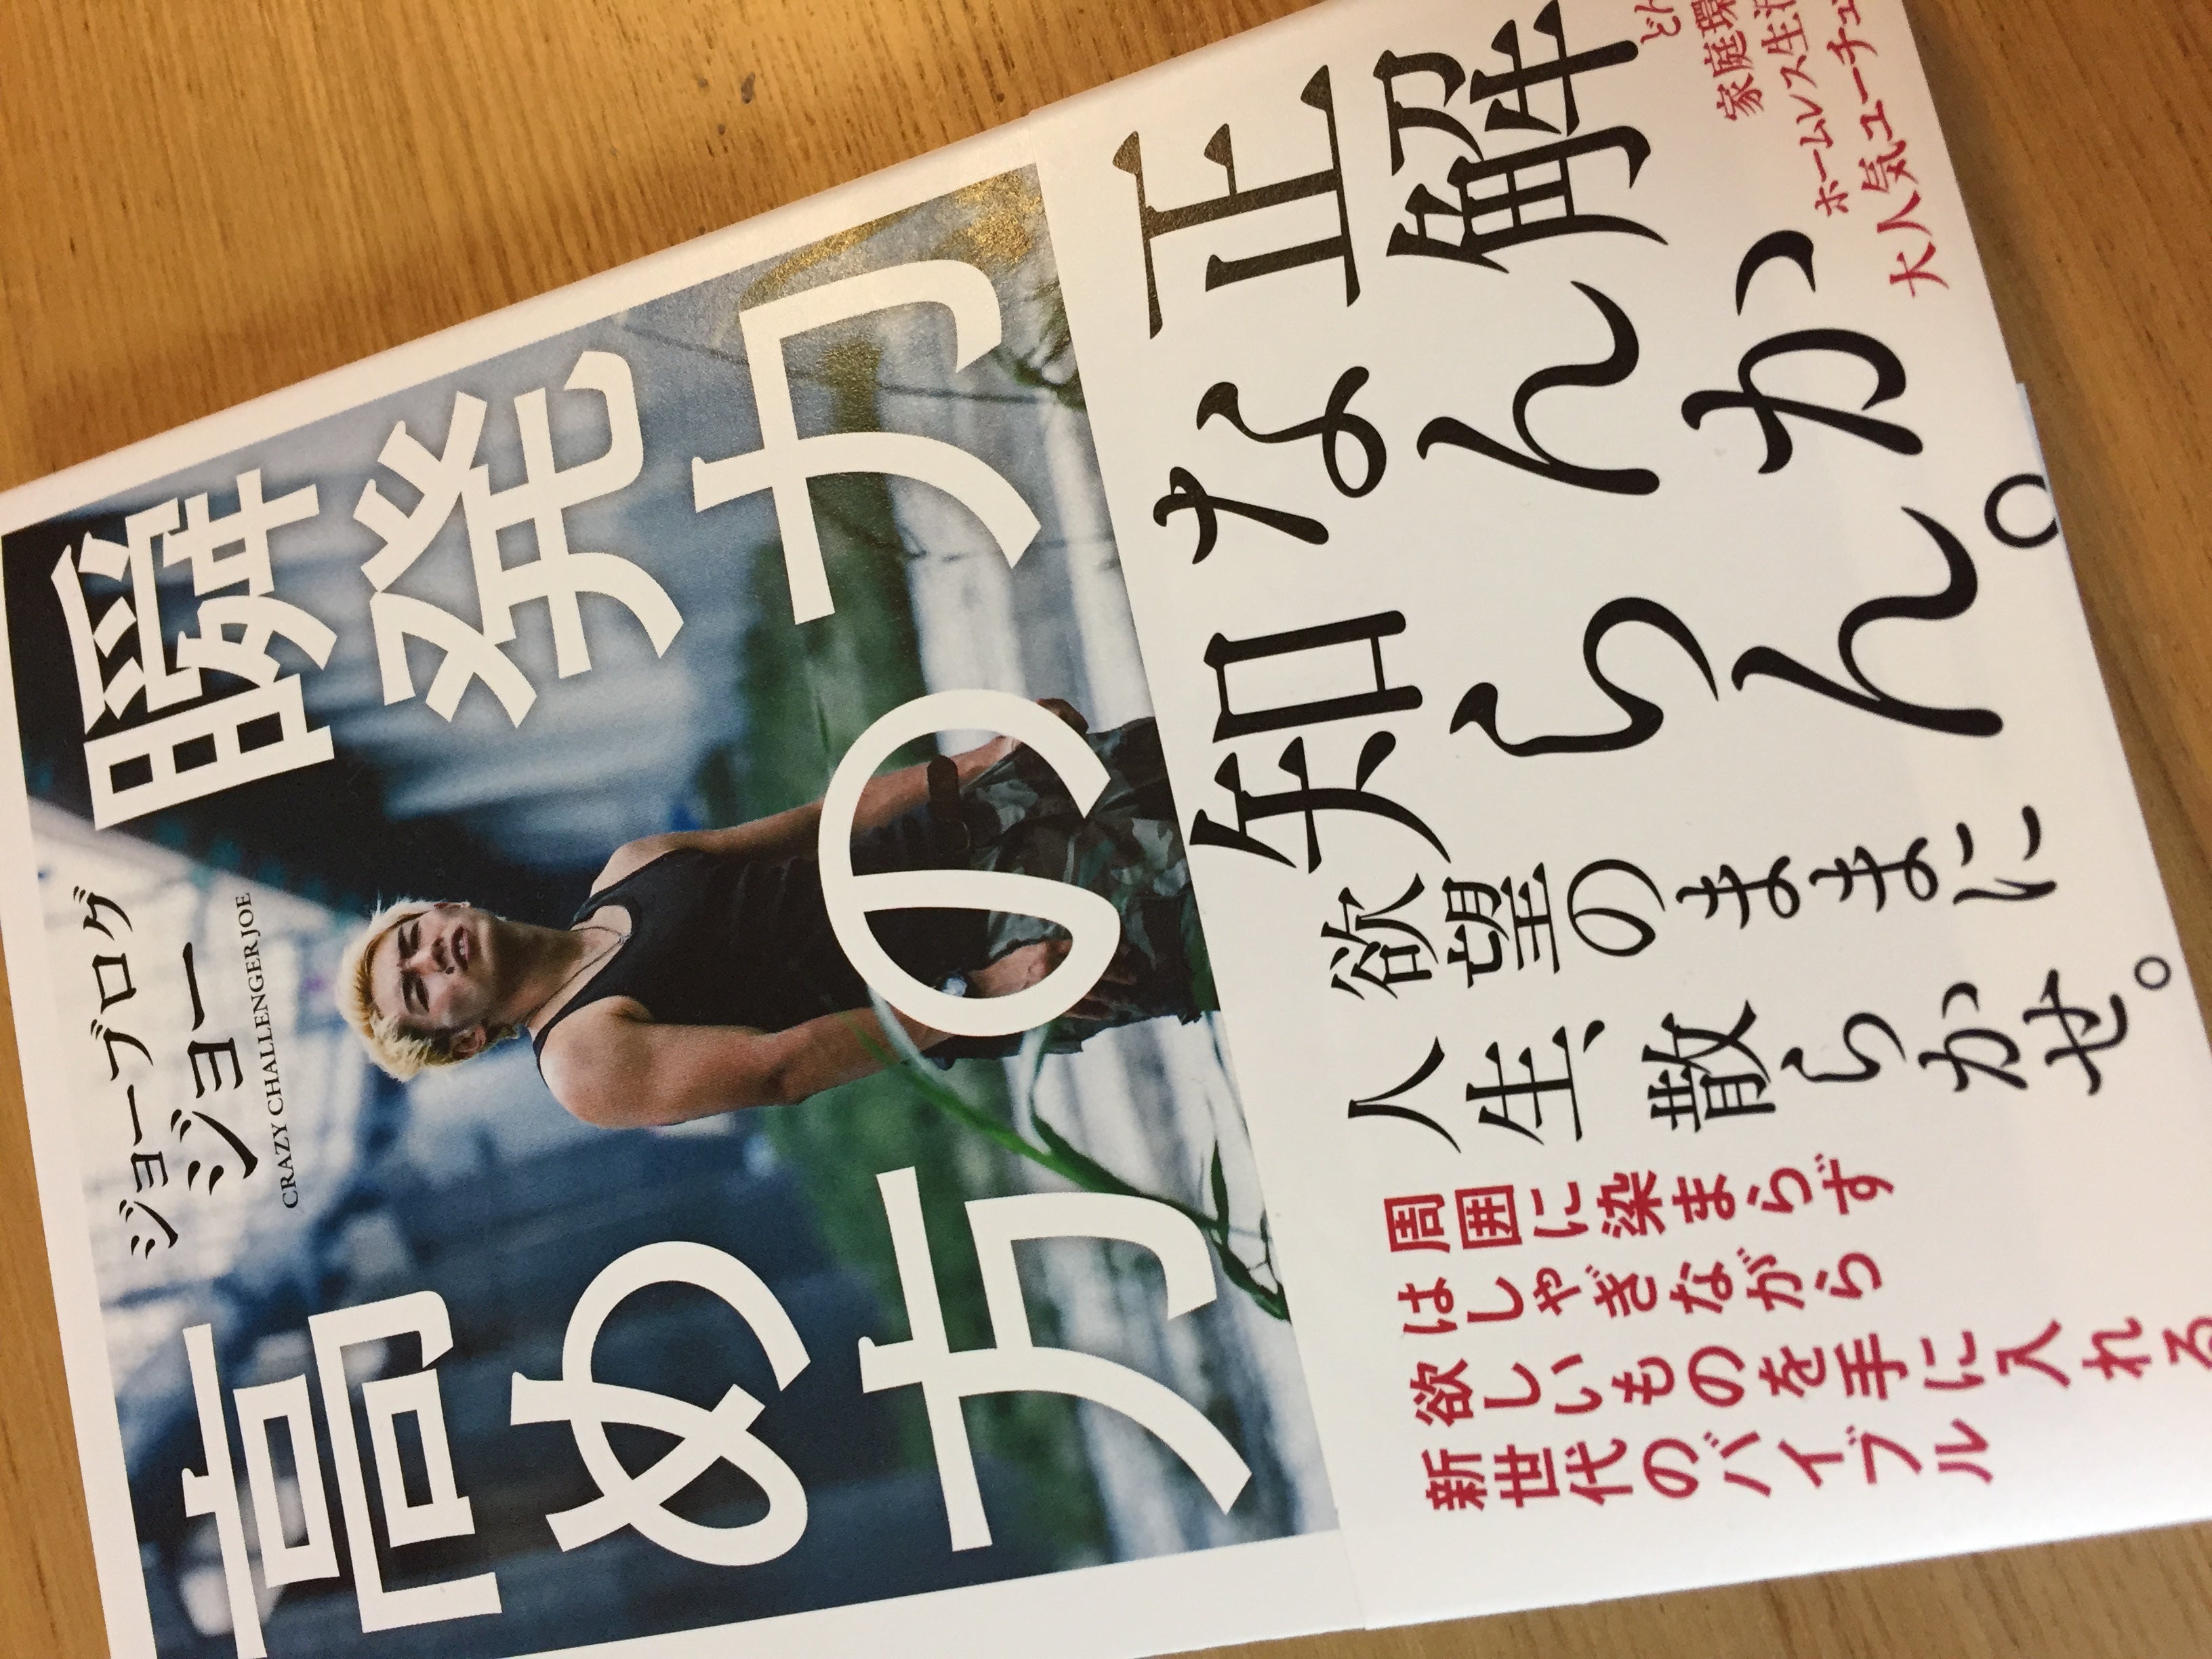 ジョーブログ
ジョー
CRAZY CHALLENGER JOE
瞬発力
の
高め方
正解
なんか
知らん。
欲望のままに
人生、散らかせ。
周囲に染まらず
はしゃぎながら
欲しいものを手に入れる
新世代のバイブル
家庭環
ホームレス生
大人気ユーチュ